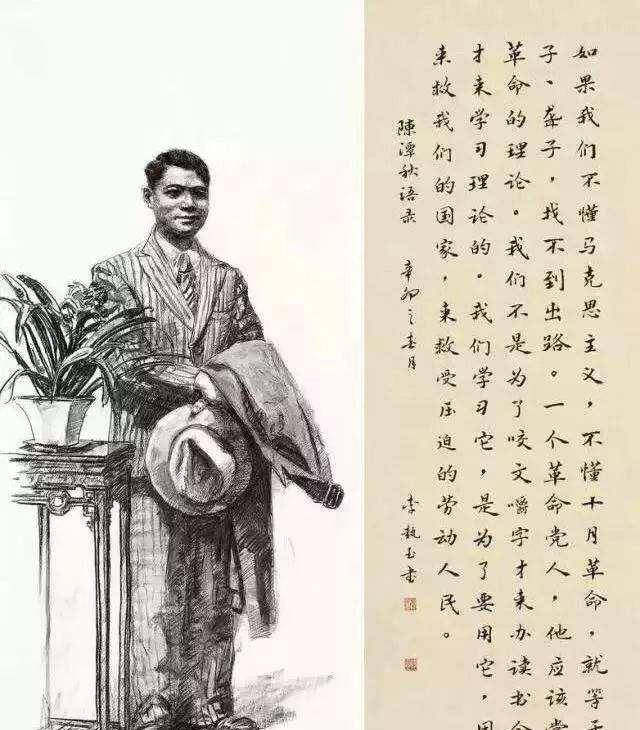 如果我们不懂马克思主义，不懂十月革命，就等于
子、聋子，找不到出路。一个革命党人，他应该
革命的理论。我们不是为了咬文嚼字才来办读书会
才来学习理论的。我们学习它，是为了要用它，用
来救我们的国家，来救受压迫的劳动人民。
陳潭秋语录 辛卯之春月 李